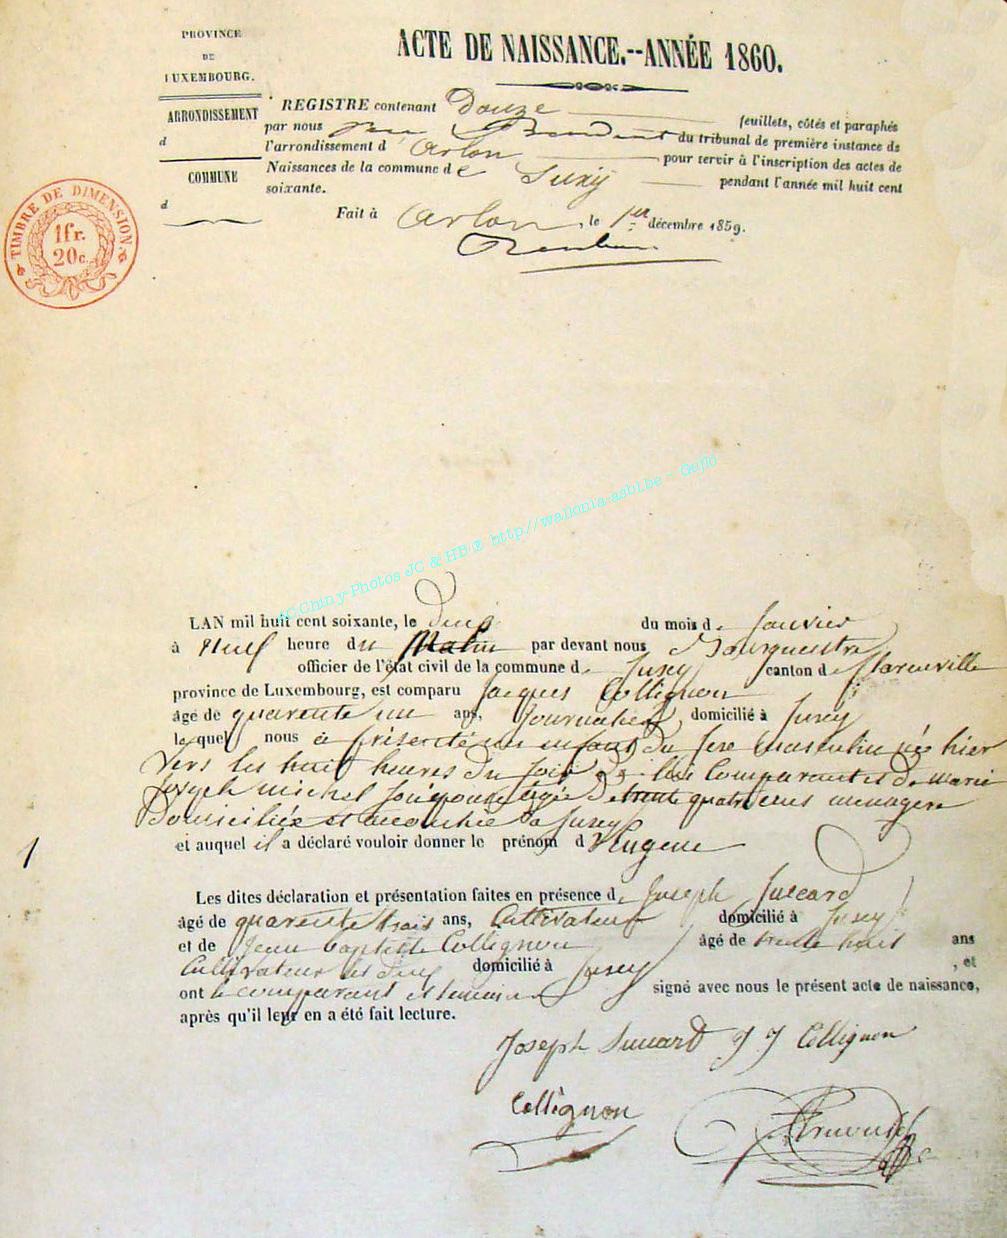 PROVINCE
DE
LUXEMBOURG.
ARRONDISSEMENT
d
COMMUNE
d
TIMBRE DE DIMENSION
1 fr.
20 c.
ACTE DE NAISSANCE.--ANNÉE 1860.
REGISTRE contenant Douze feuillets, côtés et paraphés
par nous du tribunal de première instance de
l'arrondissement d' Arlon pour servir à l'inscription des actes de
Naissances de la commune de Suxy pendant l'année mil huit cent
soixante.
Fait à Arlon, le 1er décembre 1859.
ACChiny-Photos JC & HB @ http//wallonia-asbl.be - Gefio
LAN mil huit cent soixante, le deux du mois de Janvier
à neuf heure du Matin par devant nous Bourguestre
officier de l'état civil de la commune de Suxey canton de florenville
province de Luxembourg, est comparu Jacques Collignon
âgé de quarente un ans, Journalier domicilié à Suxey
lequel nous a présenté un enfant du sexe masculin née hier
vers les huit heures du soir comparant et de marie
Joseph michel son épouse agée de trente quatre ans menagere
Domiciliée et à Suxey
1
et auquel il a déclaré vouloir donner le prénom d'Eugene
Les dites déclaration et présentation faites en présence de Joseph
âgé de quarente trois ans, Cultivateur domicilié à Suxey
et de Jean baptiste Collignon âgé de trente huit ans
Cultivateur domicilié à Suxey, et
ont le comparant et temoins signé avec nous le présent acte de naissance,
après qu'il leur en a été fait lecture.
Joseph J J Collignon
Collignon